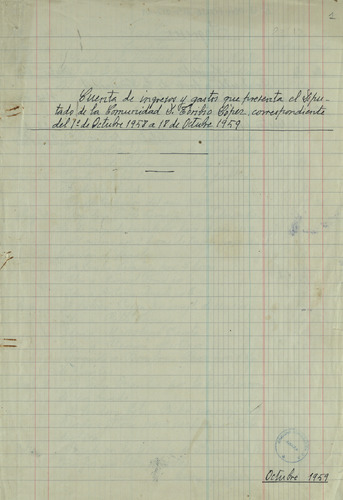 2
Cuenta de ingresos y gastos que presenta el Dipu-
tado de la Comunidad D. Emilio López, correspondiente
del 1º de Octubre 1958 a 18 de Octubre 1959
Octubre 1959